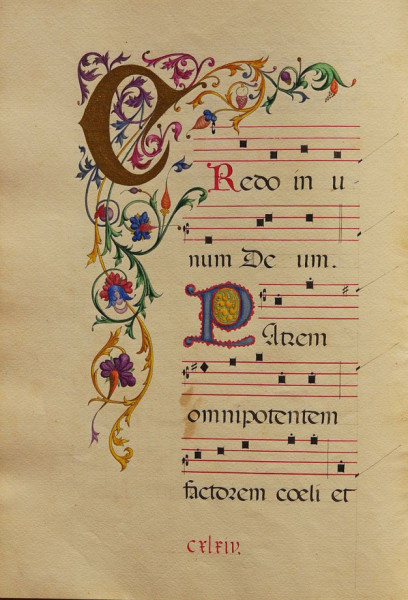 CRedo in u
num De um.
PAtrem
omnipotentem
factorem cœli et
CXLXIV.